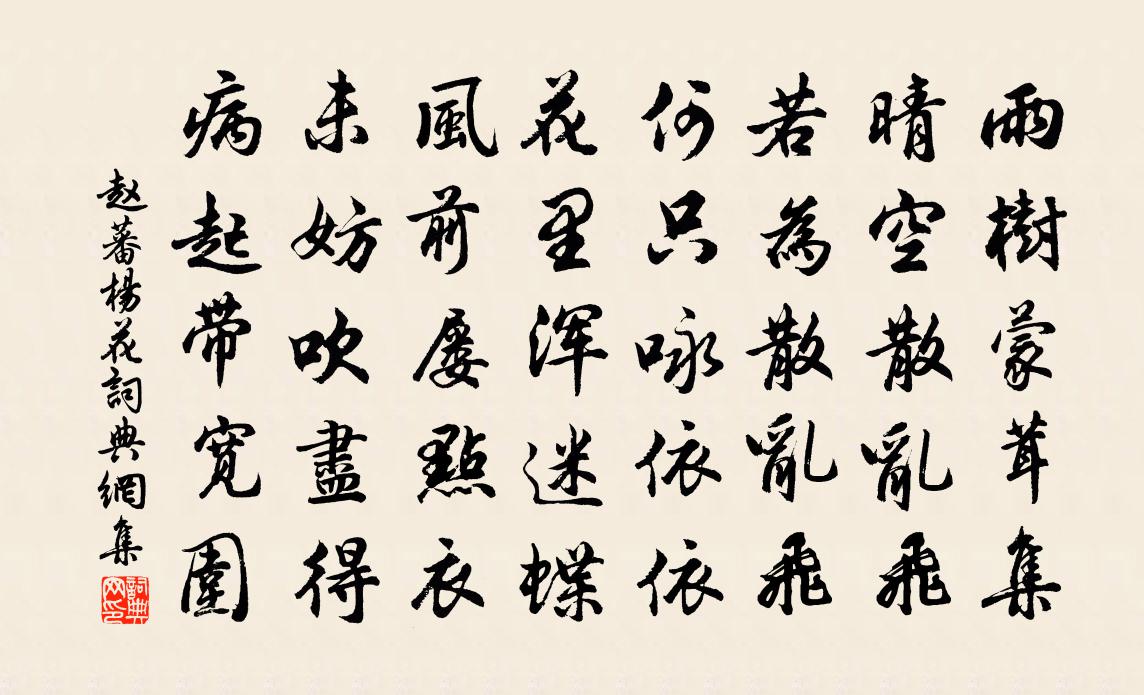 雨樹蒙茸集
晴空散亂飛
若為散亂飛
何只咏依依
花里浑迷蝶
風前屡點衣
未妨吹盡得
病起帯寛圍
赵蕃楊花詞典網集
詞典网印